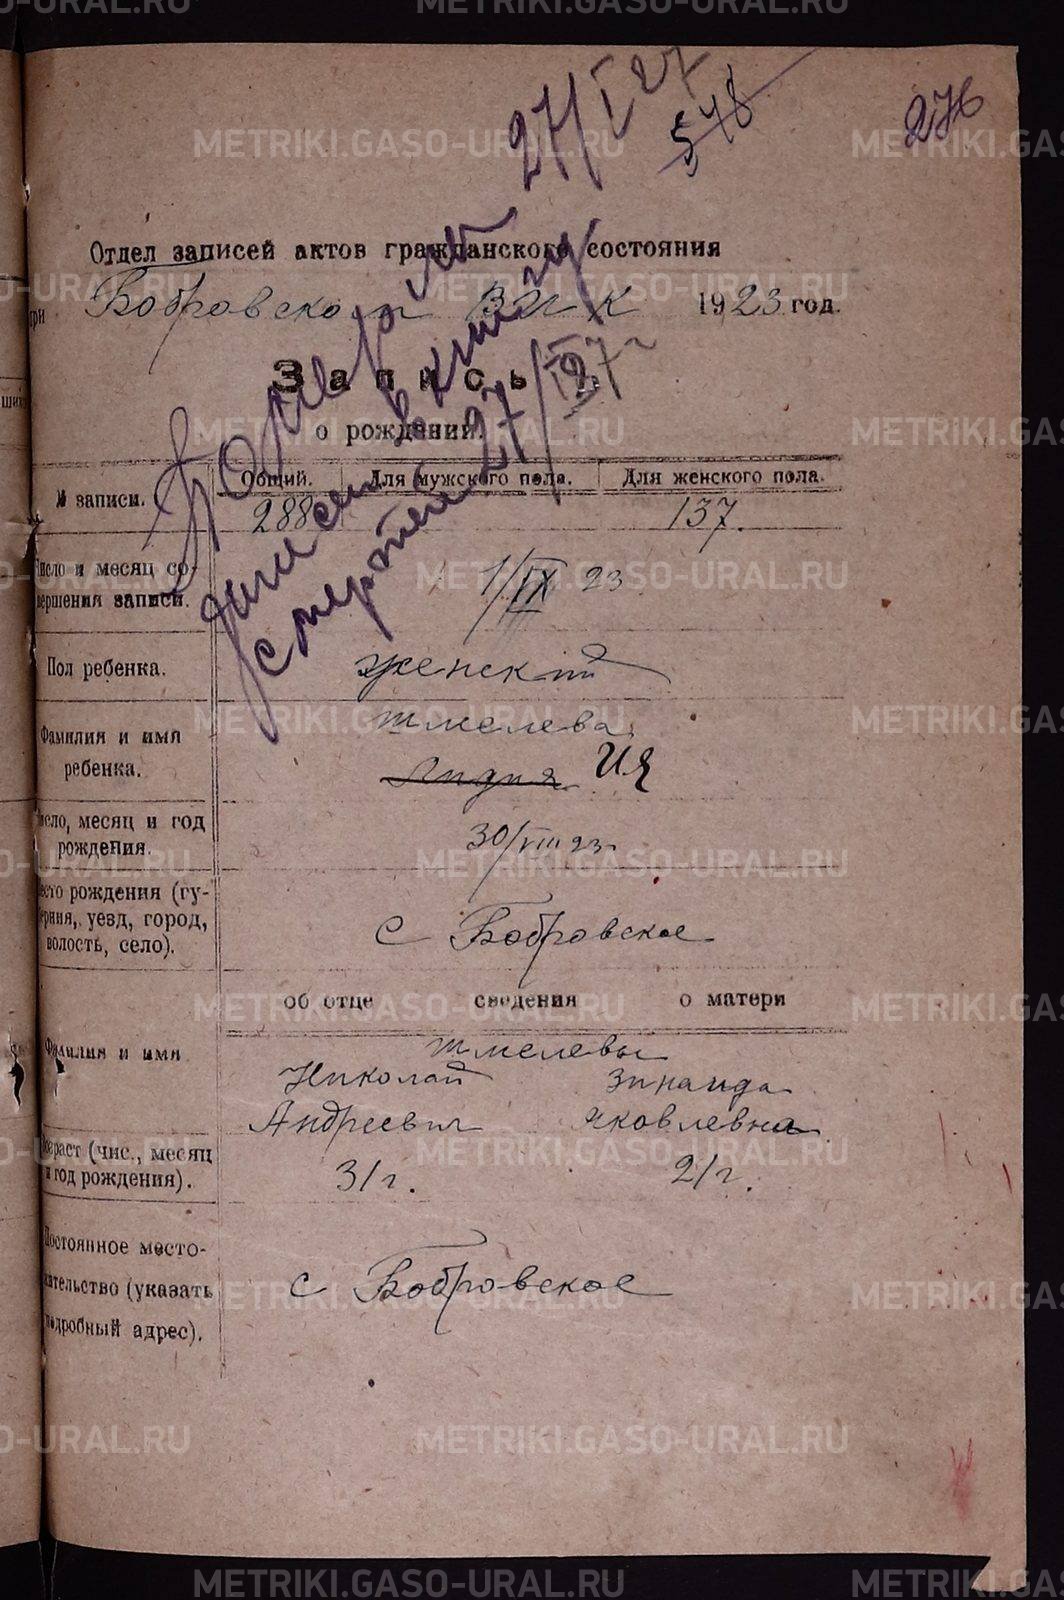 27/I 27
548
276
Отдел записей актов гражданского состояния
при Бобровском ВИК 1923 год.
Запись
о рождении.
№ записи.
Общий. Для мужского пола. Для женского пола.
288 137.
Число и месяц со-
вершения записи.
1/IX 23
Пол ребенка.
женский
Фамилия и имя
ребенка.
Шмелева
Лидия Ия
Число, месяц и год
рождения.
30/VIII 23
Место рождения (гу-
берния, уезд, город,
волость, село).
с Бобровское
об отце сведения о матери
Фамилия и имя
Шмелевы
Николай Зинаида
Андреевич Яковлевна
Возраст (чис., месяц
и год рождения).
31 г. 21 г.
Постоянное место-
жительство (указать
подробный адрес).
с Бобровское
записан в книгу
смертей 27/I 27 г
METRIKI.GASO-URAL.RU